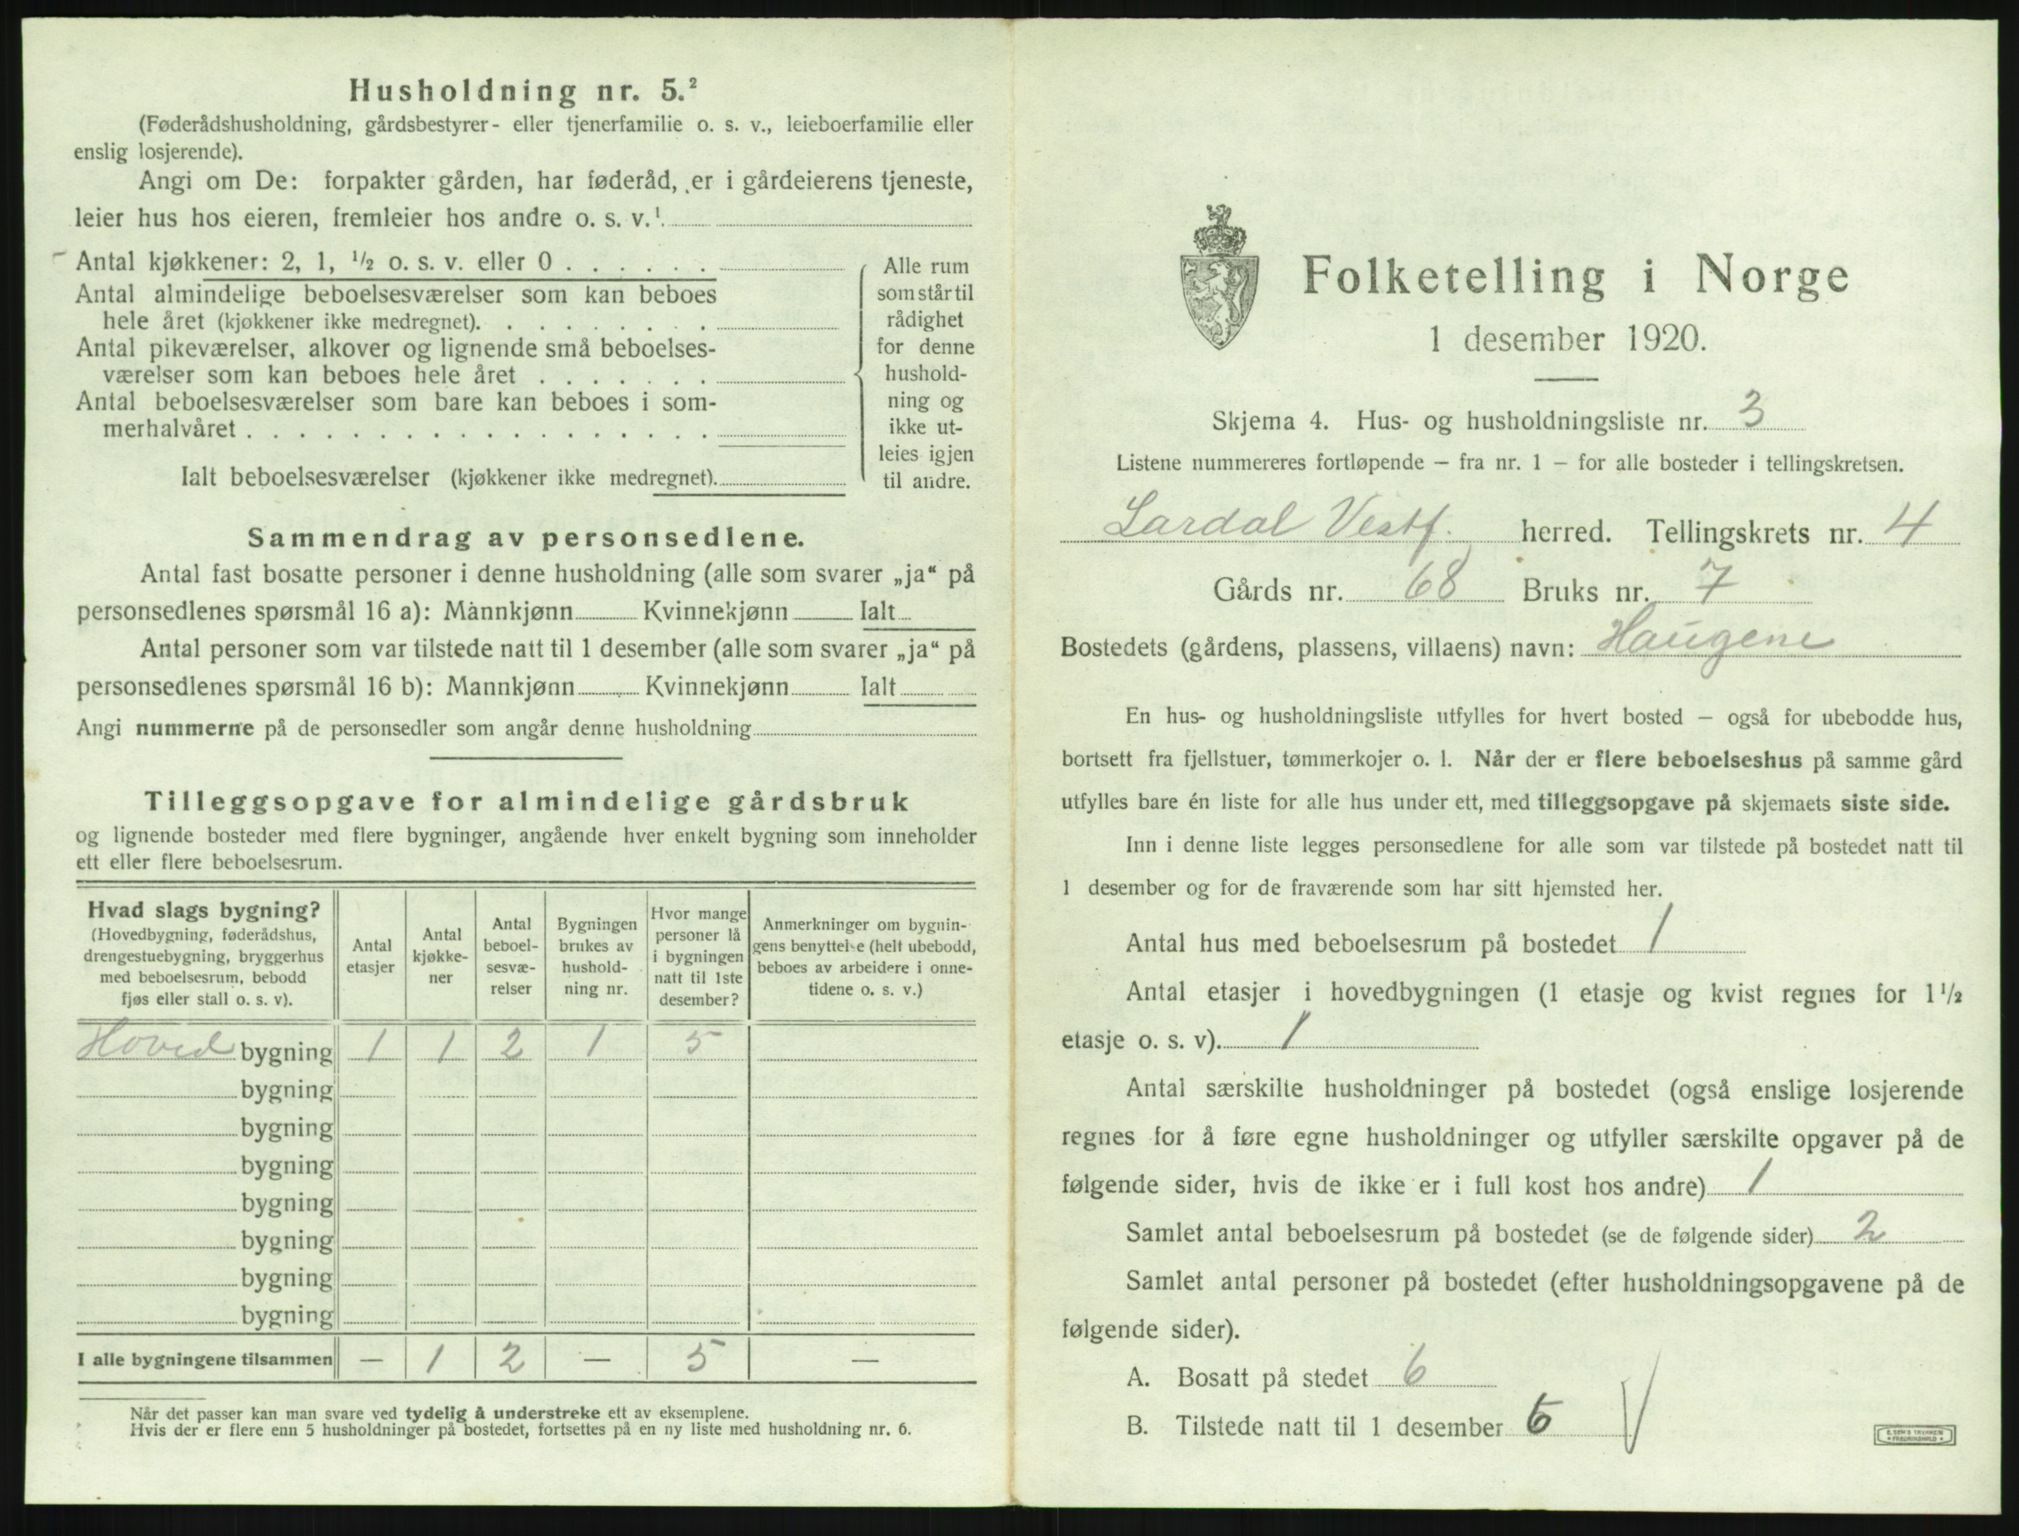 Husholdning nr. 5.²
(Føderådshusholdning, gårdsbestyrer- eller tjenerfamilie o. s. v., leieboerfamilie eller
enslig losjerende).
Angi om De: forpakter gården, har føderåd, er i gårdeierens tjeneste,
leier hus hos eieren, fremleier hos andre o. s. v.¹
Antal kjøkkener: 2, 1, ½ o. s. v. eller 0 . . . . . .
Antal almindelige beboelsesværelser som kan beboes
hele året (kjøkkener ikke medregnet). . . . . . . . .
Antal pikeværelser, alkover og lignende små beboelses-
værelser som kan beboes hele året . . . . . . .
Antal beboelsesværelser som bare kan beboes i som-
merhalvåret . . . . . . . . . . . . . . . . . .
Ialt beboelsesværelser (kjøkkener ikke medregnet).
Alle rum
som står til
rådighet
for denne
hushold-
ning og
ikke ut-
leies igjen
til andre.
Sammendrag av personsedlene.
Antal fast bosatte personer i denne husholdning (alle som svarer „ja“ på
personsedlenes spørsmål 16 a): Mannkjønn Kvinnekjønn Ialt
Antal personer som var tilstede natt til 1 desember (alle som svarer „ja“ på
personsedlenes spørsmål 16 b): Mannkjønn Kvinnekjønn Ialt
Angi nummerne på de personsedler som angår denne husholdning
Tilleggsopgave for almindelige gårdsbruk
og lignende bosteder med flere bygninger, angående hver enkelt bygning som inneholder
ett eller flere beboelsesrum.
Hvad slags bygning?
(Hovedbygning, føderådshus,
drengestuebygning, bryggerhus
med beboelsesrum, bebodd
fjøs eller stall o. s. v).
Antal
etasjer
Antal
kjøkke-
ner
Antal
beboel-
sesvæ-
relser
Bygningen
brukes av
hushold-
ning nr.
Hvor mange
personer lå
i bygningen
natt til 1ste
desember?
Anmerkninger om bygnin-
gens benyttelse (helt ubebodd,
beboes av arbeidere i onne-
tidene o. s. v.)
Hoved bygning 1 1 2 1 5
bygning
bygning
bygning
bygning
bygning
bygning
bygning
I alle bygningene tilsammen — 1 2 — 5 —
Når det passer kan man svare ved tydelig å understreke ett av eksemplene.
Hvis der er flere enn 5 husholdninger på bostedet, fortsettes på en ny liste med husholdning nr. 6.
Folketelling i Norge
1 desember 1920.
Skjema 4. Hus- og husholdningsliste nr. 3
Listene nummereres fortløpende – fra nr. 1 – for alle bosteder i tellingskretsen.
Lardal Vestf. herred. Tellingskrets nr. 4
Gårds nr. 68 Bruks nr. 7
Bostedets (gårdens, plassens, villaens) navn: Haugene
En hus- og husholdningsliste utfylles for hvert bosted – også for ubebodde hus,
bortsett fra fjellstuer, tømmerkojer o. l. Når der er flere beboelseshus på samme gård
utfylles bare én liste for alle hus under ett, med tilleggsopgave på skjemaets siste side.
Inn i denne liste legges personsedlene for alle som var tilstede på bostedet natt til
1 desember og for de fraværende som har sitt hjemsted her.
Antal hus med beboelsesrum på bostedet 1
Antal etasjer i hovedbygningen (1 etasje og kvist regnes for 1½
etasje o. s. v). 1
Antal særskilte husholdninger på bostedet (også enslige losjerende
regnes for å føre egne husholdninger og utfyller særskilte opgaver på de
følgende sider, hvis de ikke er i full kost hos andre) 1
Samlet antal beboelsesrum på bostedet (se de følgende sider) 2
Samlet antal personer på bostedet (efter husholdningsopgavene på de
følgende sider).
A. Bosatt på stedet 6
B. Tilstede natt til 1 desember